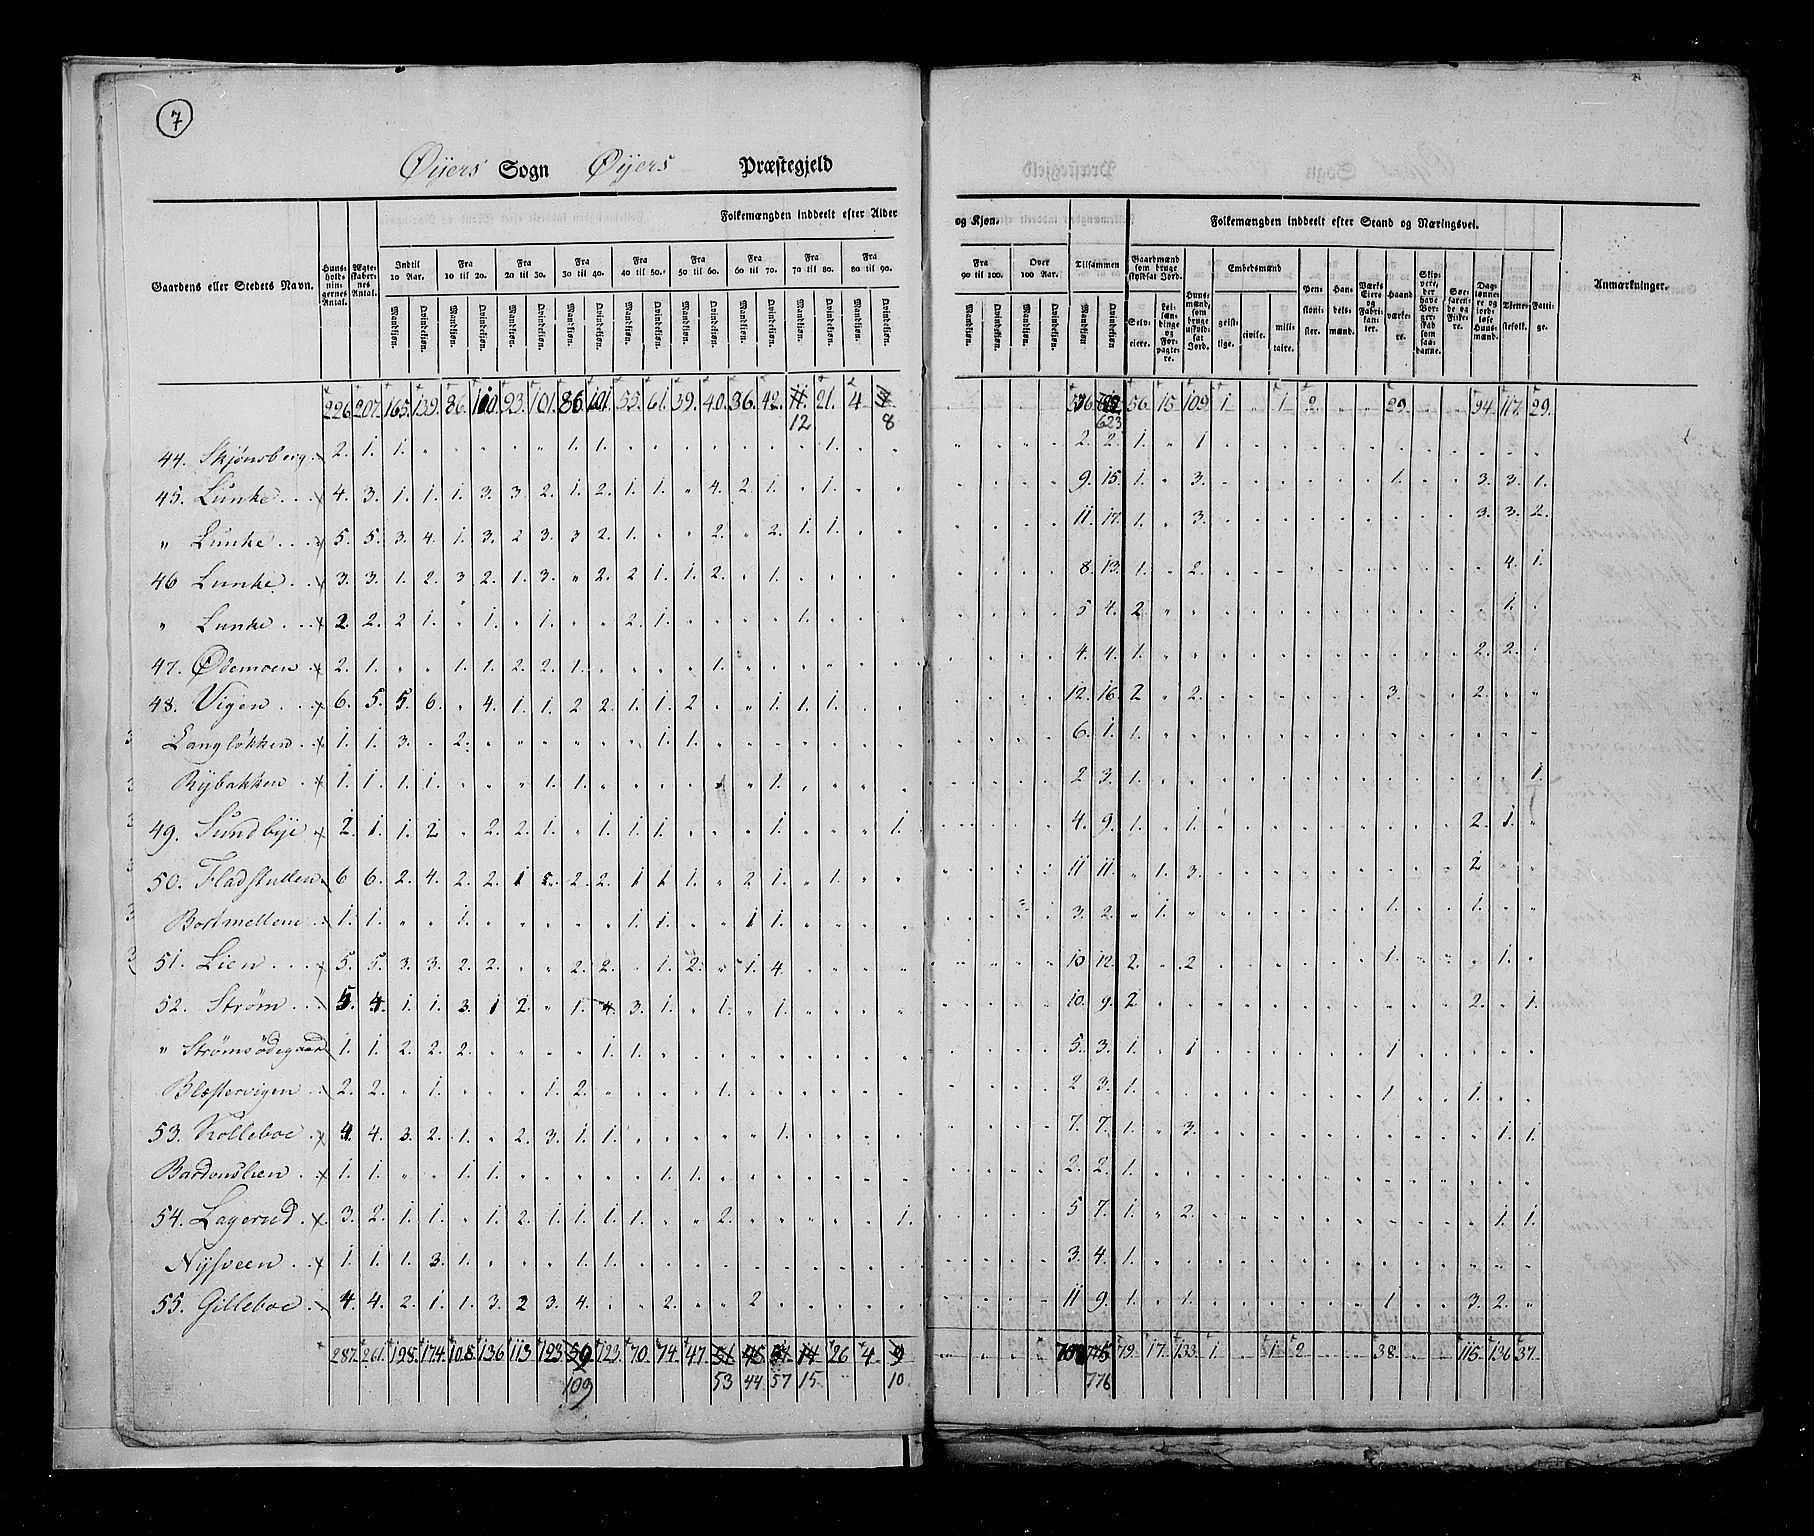 7
Øijers Sogn Øijers Præstegjeld
Folkemængden inddeelt efter Alder og Kjøn. Folkemængden inddeelt efter Stand og Næringsvei.
Gaardens eller Stedets Navn. Huusholdningernes Antal. Ægteskabernes Antal. Indtil 10 Aar. Fra 10 til 20. Fra 20 til 30. Fra 30 til 40. Fra 40 til 50. Fra 50 til 60. Fra 60 til 70. Fra 70 til 80. Fra 80 til 90. Fra 90 til 100. Over 100 Aar. Tilsammen Gaardmænd som bruge skyldsat Jord. Huusmænd, som bruge uskyldsat Jord. Embedsmænd Pensionister. Handelsmænd. Værks Eiere og Fabrikanter. Haandværkere. Skippere, der have Borgerskab som saadanne. Søefarende og Fiskere. Daglønnere og jordløse Huusmænd. Tienestefolk. Fattige. Anmærkninger.
Mandkjøn. Qvindekjøn. Mandkjøn. Qvindekjøn. Mandkjøn. Qvindekjøn. Mandkjøn. Qvindekjøn. Mandkjøn. Qvindekjøn. Mandkjøn. Qvindekjøn. Mandkjøn. Qvindekjøn. Mandkjøn. Qvindekjøn. Mandkjøn. Qvindekjøn. Mandkjøn. Qvindekjøn. Mandkjøn. Qvindekjøn. Mandkjøn. Qvindekjøn. Selveiere. Leilændinge og Forpagtere. geistlige. civile. militaire.
226. 207. 165. 139. 86. 100. 93. 101. 86. 101. 55. 61. 39. 40. 36. 42. 11. 21. 4. 56. 15 109. 1 1. 2. 29. 94. 117. 29.
12 8 623
44. Skjönsberg 2. 1. 1. 1. 1. 1. 2. 2. 1. 1
45. Lunke 4. 3. 1. 1. 1. 3. 3. 2. 1. 2. 1. 1. 4. 2. 1. 1. 9. 15. 1. 3. 1. 3. 3. 1.
" Lunke 5. 5. 3. 4. 1. 3. 2 3. 3 2. 1. 2. 2. 1. 1. 11. 17. 1. 3. 3. 3. 2.
46 Lunke 3. 3. 1. 2. 3 2. 1. 3. 2. 2 1. 1. 2. 1. 8. 13. 1. 2. 4. 1.
" Lunke 2. 2. 2 1. 1. 1. 2. 1. 1. 5 4. 2. 1.
47. Ødemoen 2. 1. 1. 1. 2. 2. 1. 1. 4. 4. 1. 2. 2.
48. Vigen 6. 5. 5. 6. 4. 1. 1. 2 2. 1. 1. 2 1. 1. 1. 12. 16. 2 2. 3. 2.
Langløkken 1. 1. 3. 2. 1. 1. 6. 1. 1.
Rijbakken 1. 1. 1. 1. 1. 1. 1. 2 3. 1. 1.
49. Sundbije 2. 1. 1. 2 2. 2. 1. 1. 1. 1. 1. 1. 4. 9. 1. 1. 2. 1.
50. Fladstullen 6 6. 2. 4. 2. 2. 1 5. 2. 2. 1 1. 1. 2 1. 1. 11 11. 1. 3. 2
Bortmellem 1. 1. 1. 1. 1. 1 1. 3. 2. 1. 1. 1.
51. Lien 5. 5. 3. 3. 2. 2. 2. 2. 1. 2. 1. 4. 10 12. 2. 2 1. 1.
52. Ström 5. 4. 1. 1. 3. 1 2. 1. 4. 3. 1. 1. 1. 10. 9. 2. 2. 1.
" Strömsödegaard 1. 1. 2. 2. 2. 1. 1. 5. 3. 1. 1 1
Blæstervigen 2. 2. 1. 1. 2. 1. 2 3. 1. 1 1.
53. Kolleboe 4. 4. 3. 2. 1. 2. 3. 1. 1. 1. 7. 7. 1. 3. 1. 1.
Bardonslien 1. 1. 1. 1. 1. 1. 2. 2. 1.
54. Lagerud 3. 2. 1. 1. 1. 2. 1. 1. 1. 1. 2. 1. 5 7. 1. 2. 1. 1.
Nijsveen 1. 1. 1. 3. 1. 1. 1. 3. 4. 1.
55. Gilleboe 4. 4. 2. 1. 1. 3. 2 3. 4. 2. 2 11 9. 1. 1. 1 3. 2.
287. 261. 198. 174. 108. 136 113. 123. 59 123. 70. 74. 47. 51 45 54 14 26 4. 9 775 79. 17. 133. 1. 1. 2 38. 115. 136 37.
109 53 44 57 15 10 776